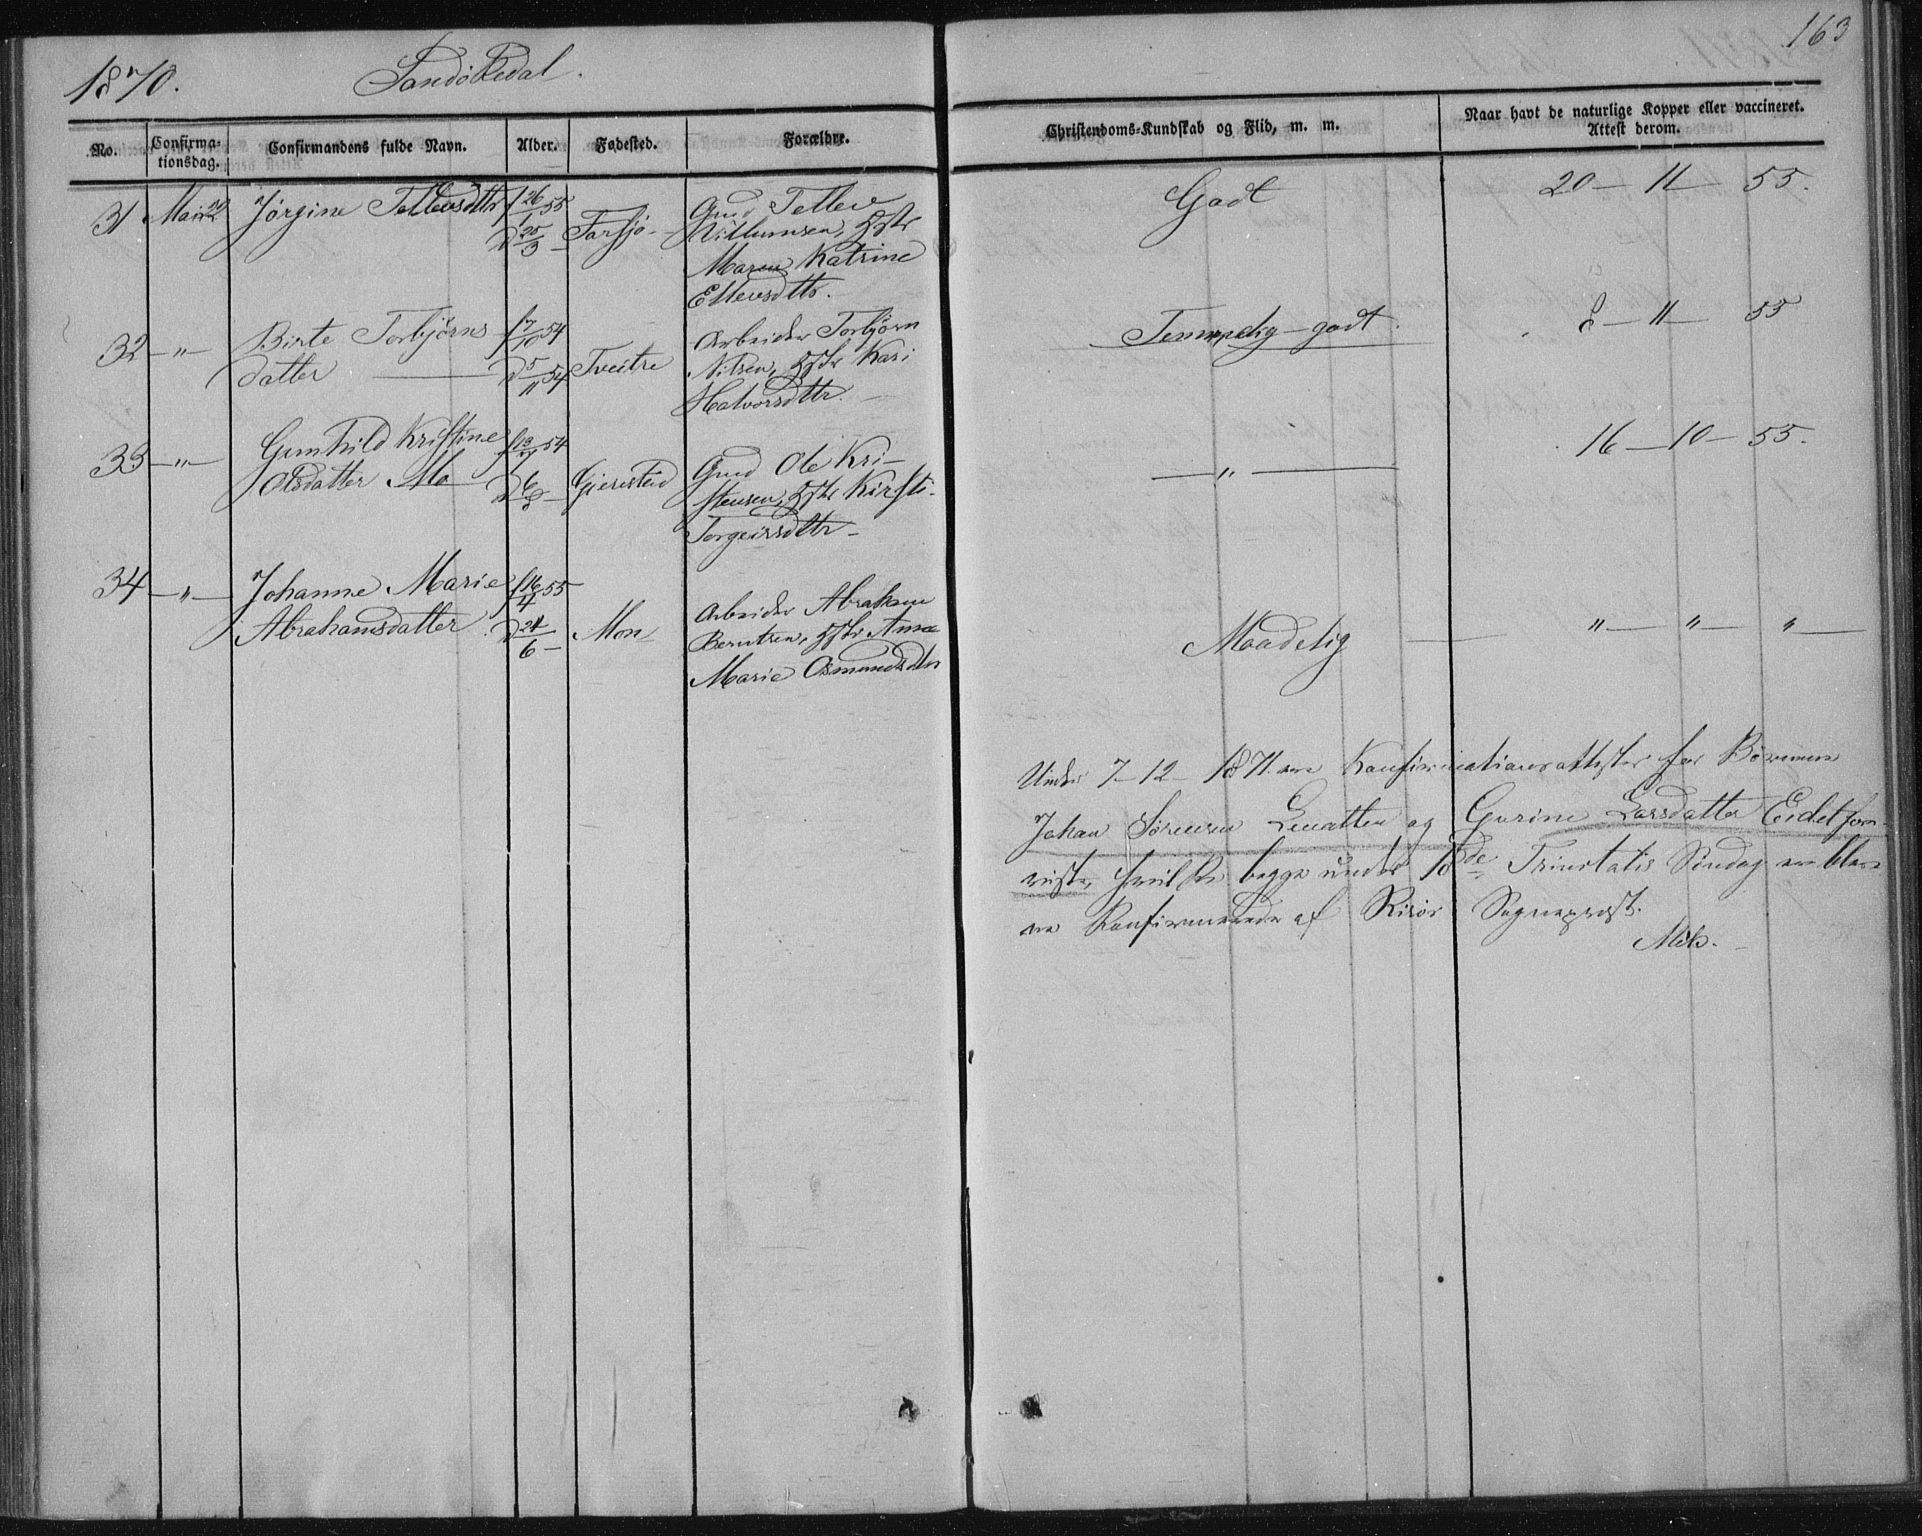 163
1870. Sandøkedal.
No.
Confirma-
tionsdag.
Confirmandens fulde Navn.
Alder.
Fødested.
Forældre.
Christendoms-Kundskab og Flid, m. m.
Naar havt de naturlige Kopper eller vaccineret.
Attest derom.
31 Mai 22 Jørgine Tellevsdttr f 26/1 55 Gmd Tellev Godt 20 - 11 - 55.
d 25/3 - Farsjø - Willumsen, Hstr
Maren Katrine
Ellevsdttr.
32 - " - Birte Torbjørns f 7/10 54 Arbeider Torbjørn Temmelig - godt. 8 - 11 - 55
datter d 5/11 54 Tveitre Nilsen, Hstr Kari
Halvorsdttr.
33 - " - Gunhild Kristine f 13/7 54 - " - 16 - 10 - 55.
Olsdatter Mo d 6/8 - Gjerestad Gmd Ole Kri-
stensen, Hstr Kirsti
Torgeirsdttr -
34 - " - Johanne Marie f 16/4 55 Arbeider Abraham
Abrahamsdatter. d 24/6 - Mon Berntsen, Hstr Anne Maadelig " - " - " -
Marie Osmundsdttr
Under 7-12-1871 ere Konfirmationsattester for Børnene
Johan Sørensen og Gurine Larsdatter Eidet
hvilke begge under 18de Trinitatis Søndag ere blev
ne Konfirmerede af Risør Sogneprest.